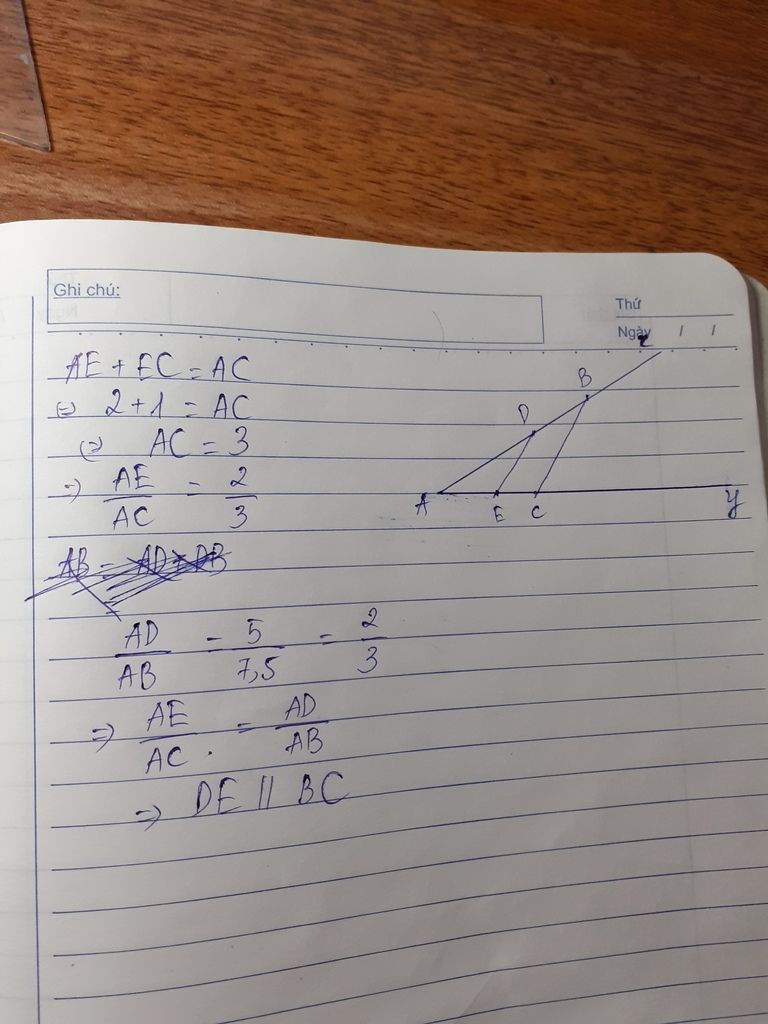 Ghi chú:
Thứ
Ngày / /
AE + EC = AC
⇔ 2 + 1 = AC
⇔ AC = 3
⇒ AE/AC = 2/3
AB = AD + DB
AD/AB = 5/7,5 = 2/3
⇒ AE/AC = AD/AB
⇒ DE // BC
x
B
D
A E C y